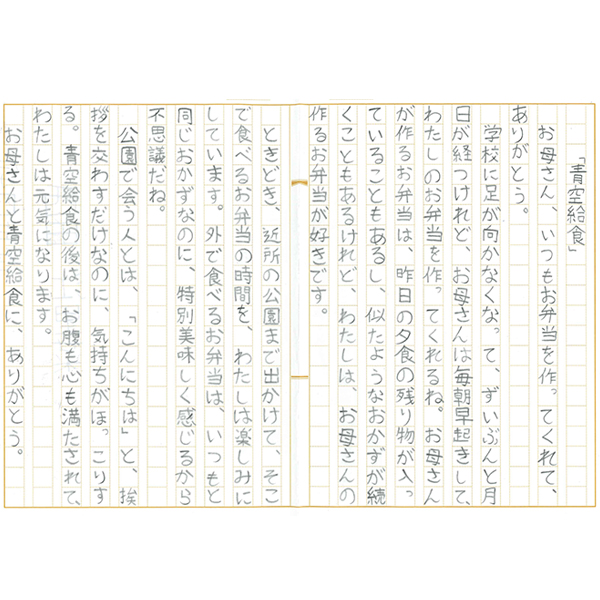 「青空給食」
お母さん、いつもお弁当を作ってくれて、
ありがとう。
学校に足が向かなくなって、ずいぶんと月
日が経つけれど、お母さんは毎朝早起きして、
わたしのお弁当を作ってくれるね。お母さん
が作るお弁当は、昨日の夕食の残り物が入っ
ていることもあるし、似たようなおかずが続
くこともあるけれど、わたしは、お母さんの
作るお弁当が好きです。
ときどき、近所の公園まで出かけて、そこ
で食べるお弁当の時間を、わたしは楽しみに
しています。外で食べるお弁当は、いつもと
同じおかずなのに、特別美味しく感じるから
不思議だね。
公園で会う人とは、「こんにちは」と、挨
拶を交わすだけなのに、気持ちがほっこりす
る。青空給食の後は、お腹も心も満たされて、
わたしは元気になります。
お母さんと青空給食に、ありがとう。